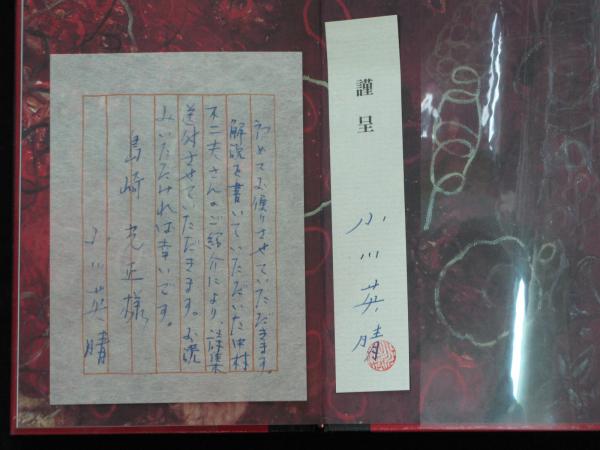 謹呈
小川英晴
初めてお便りさせていただきます。
解説を書いていただいた中村
不二夫さんのご紹介により、詩集
送付させていただきます。お読
みいただければ幸いです。
島崎 光正様
小川英晴